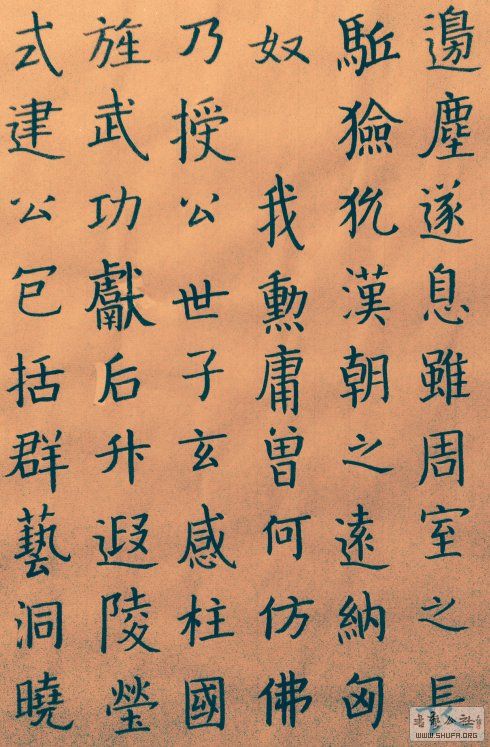 邊塵遂息雖周室之長
駈獫狁漢朝之遠納匈
奴 我勳庸曾何仿佛
乃授公世子玄感柱國
旌武功獻后升遐陵塋
式建公包括群藝洞曉
WWW.SHUFA.ORG